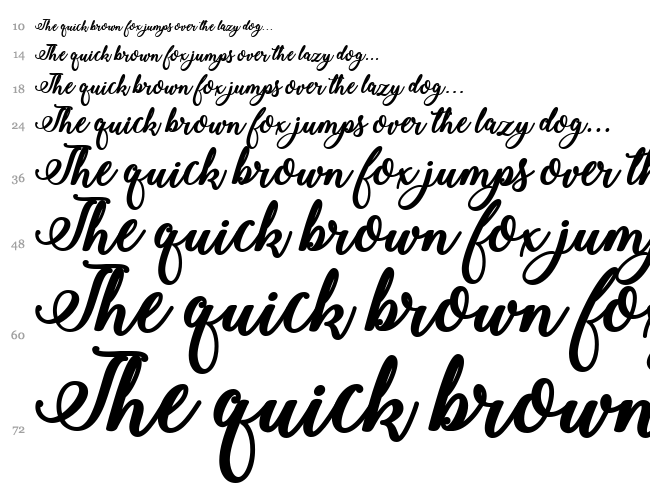 10 The quick brown fox jumps over the lazy dog...
14 The quick brown fox jumps over the lazy dog...
18 The quick brown fox jumps over the lazy dog...
24 The quick brown fox jumps over the lazy dog...
36 The quick brown fox jumps over th
48 The quick brown fox jum
60 The quick brown fo
72 The quick brown